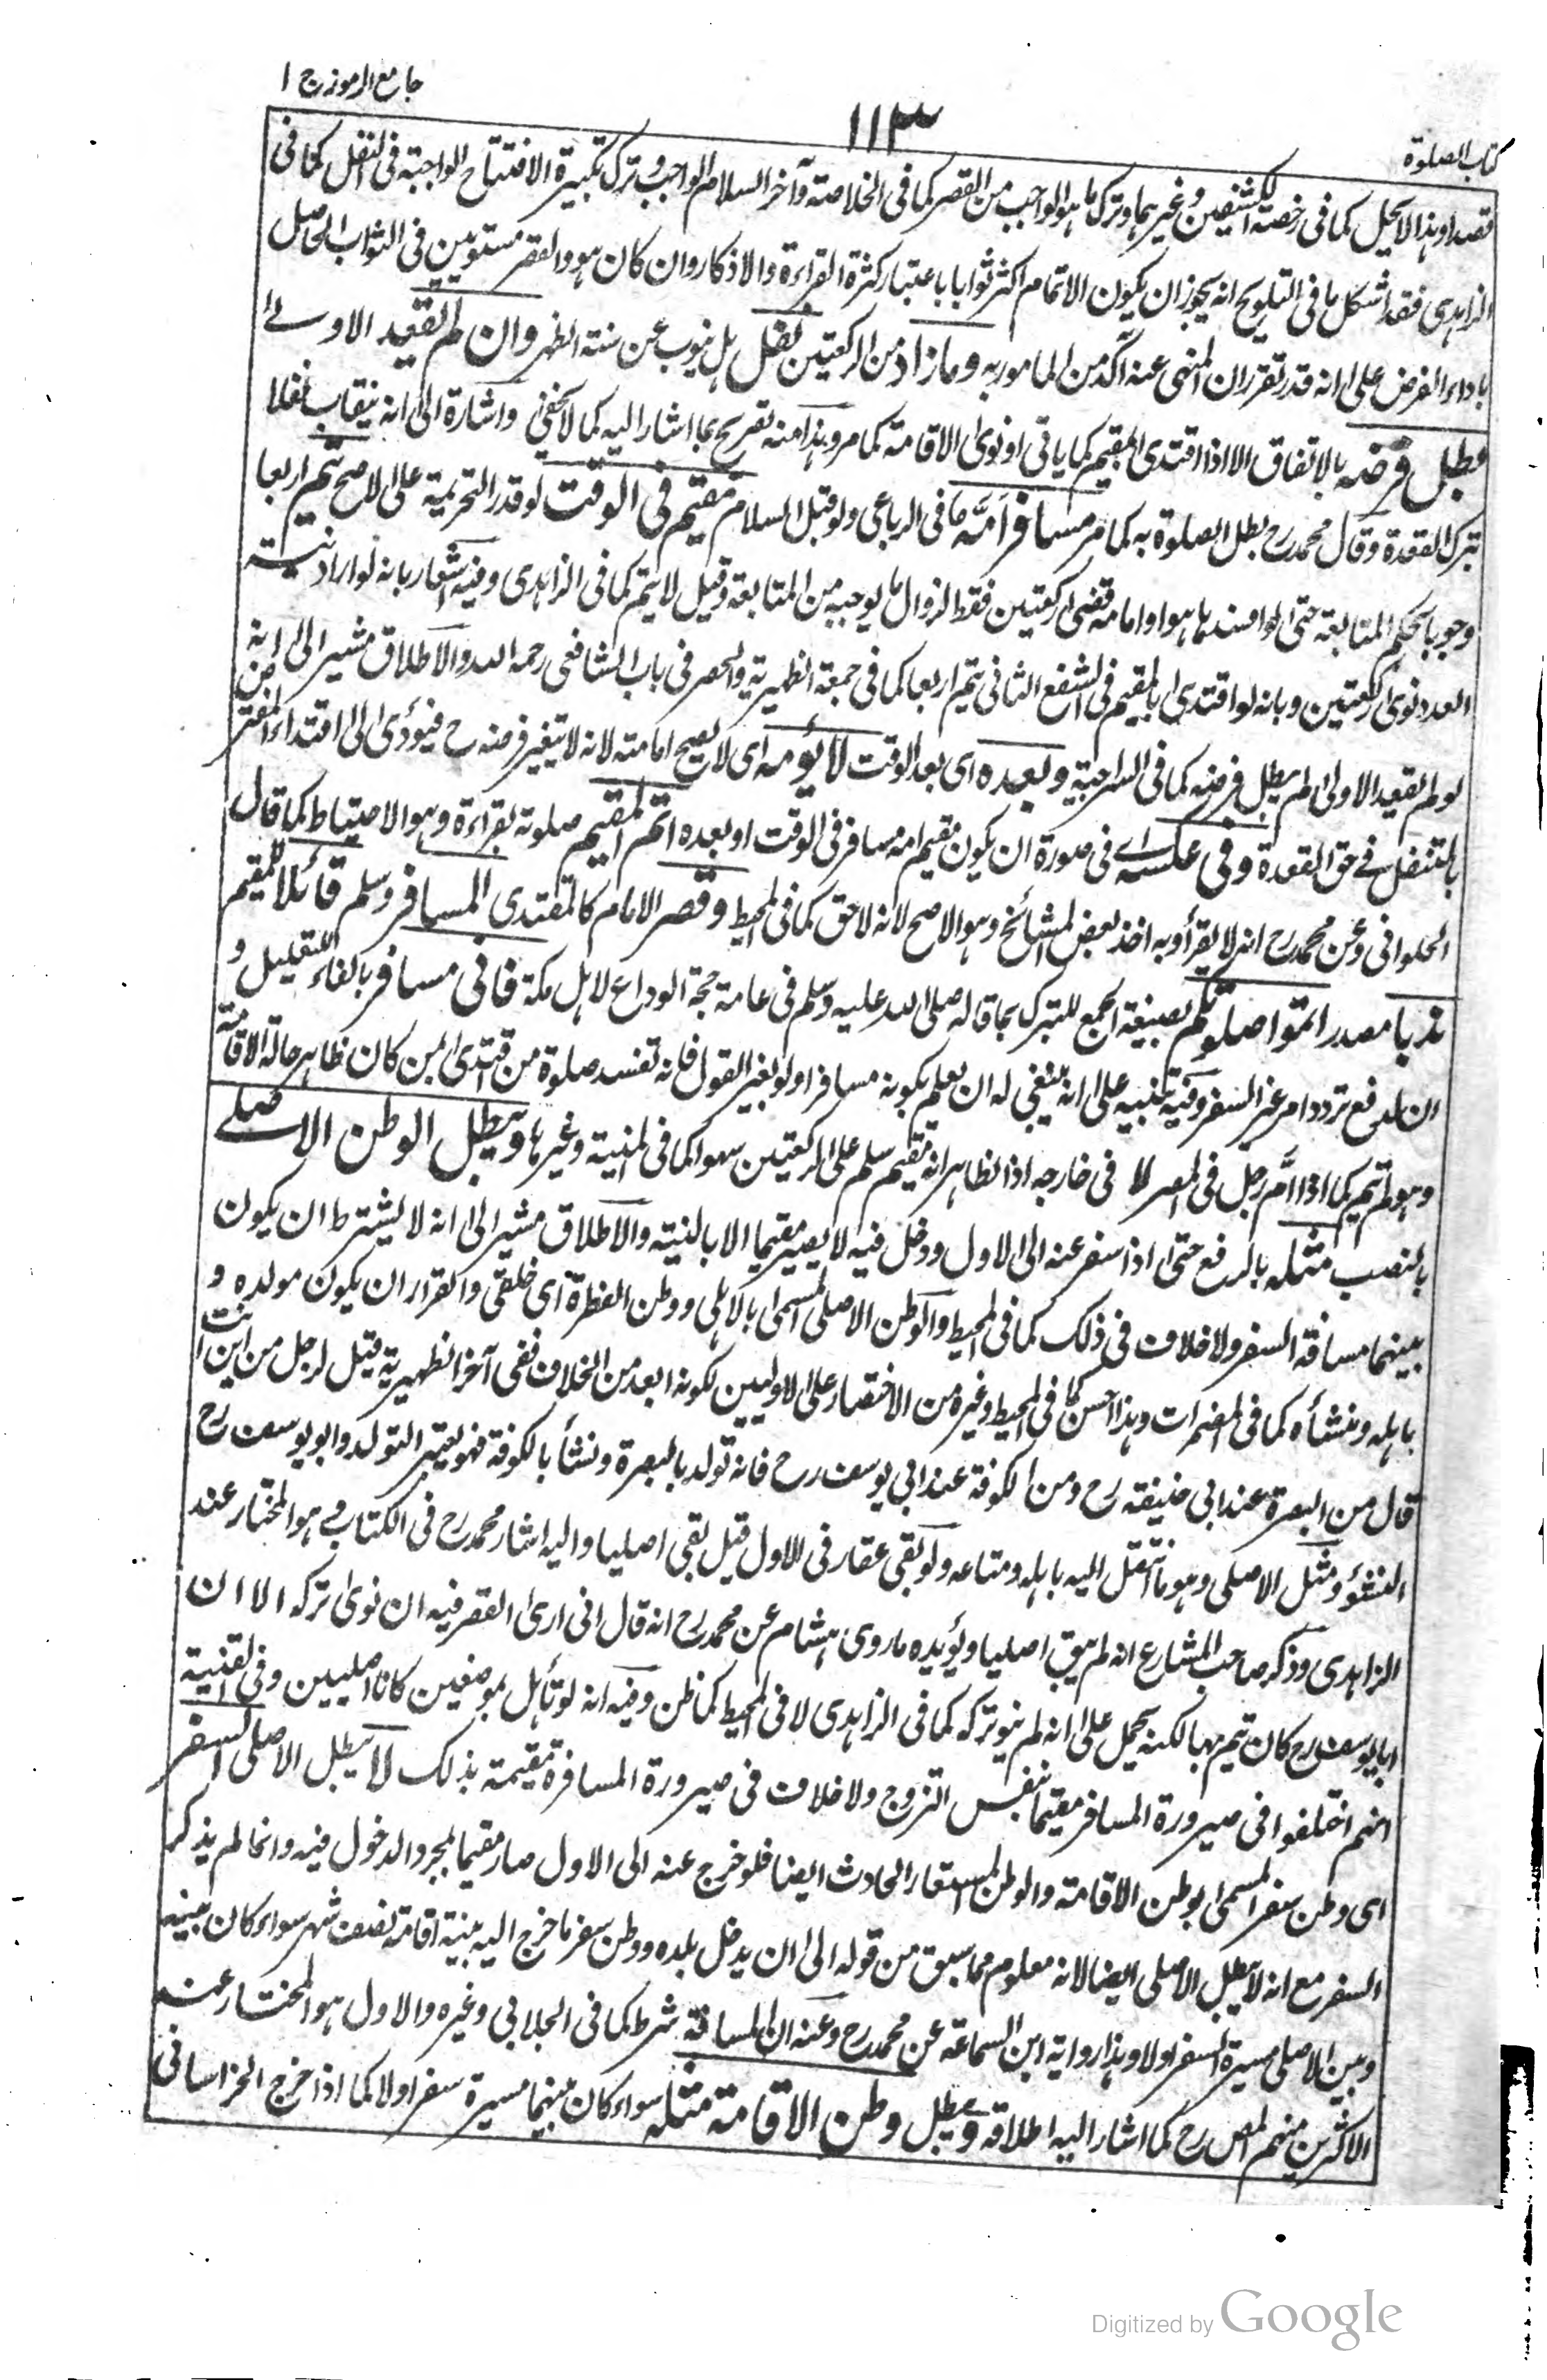 جامع الرموز ج ١
١١٣
كتاب الصلوة
قصدا وهذا لا يحل كما فى رخصة الكشفين وغيرهما وترك ما هو الواجب من القصر كما فى الخلاصة وآخر السلام الواجب وترك تكبيرة الافتتاح الواجبة فى النفل كما فى
الزاهدى فقد اشكل ما فى التلويح انه يجوز ان يكون الاتمام اكثر ثوابا باعتبار كثرة القراءة والاذكار وان كان هو والقصر مستويين فى الثواب الحاصل
باداء الفرض على انه قد تقرر ان المنهى عنه آكد من المامور به وما زاد من الركعتين نفل بل ينوب عن سنة الظهر وان لم يقعد الاولى
بطل فرضه بالاتفاق الا اذا اقتدى بالمقيم كما ياتى او نوى الاقامة كما مر وهذا منه تصريح بما اشار اليه كما لا يخفى واشارة الى انه ينقلب نفلا
بترك القعدة وقال محمد رح بطل الصلوة به كما مر مسافر امه ما فى الرباعى ولو قبل السلام مقيم فى الوقت لو قدر التحريمة على الاصح يتم اربعا
وجوبا بحكم المتابعة حتى لو افسدها هو او امامه قضى ركعتين فقط لزوال ما يوجبه من المتابعة وقيل لا يتم كما فى الزاهدى وفيه اشعار بانه لو اراد نيته
العدد نوى ركعتين وبانه لو اقتدى بالمقيم فى الشفع الثانى يتم اربعا كما فى جمعة الظهيرية والحصر فى باب الشافعى رحمه الله والاطلاق مشير الى انه
لو لم يقعد الاولى لم يبطل فرضه كما فى السراجية وبعده اى بعد الوقت لا يؤمه اى لا يصح امامته لانه لا يتغير فرضه ح فيؤدى الى اقتداء المفترض
بالمتنفل فى حق القعدة وفى عكسه اى فى صورة ان يكون مقيم امه مسافر فى الوقت او بعده اتم المقيم صلوته بقراءة وهو الاحتياط كما قال
الحلوانى وعن محمد رح انه لا يقرأ وبه اخذ بعض المشائخ وهو الاصح لانه لاحق كما فى المحيط وقصر الامام كالمقتدى المسافر وسلم قائلا للمقيم
ندبا مصدر اتموا صلوتكم بصيغة الجمع للتبرك بما قاله صلى الله عليه وسلم فى عامة حجة الوداع لاهل مكة فانى مسافر بالفاء للتعليل و
ان لدفع تردد امر غير السفر وفيه تنبيه على انه ينبغى له ان يعلم بكونه مسافرا ولو بغير القول فانه تفسد صلوة من اقتدى بمن كان ظاهر حالة الاقامة
وهو لم يتم كما اذا امّ رجل فى المصر لا فى خارجه اذ الظاهر انه مقيم سلم على الركعتين سهوا كما فى المنية وغيرها ويبطل الوطن الاصلى
بالنصب مثله بالرفع حتى اذا سفر عنه الى الاول ودخل فيه لا يصير مقيما الا بالنية والاطلاق مشير الى انه لا يشترط ان يكون
بينهما مسافة السفر ولا خلاف فى ذلك كما فى المحيط والوطن الاصلى المسمى بالاهلى ووطن الفطرة اى خلقى والقرار ان يكون مولده و
باهله ومنشأه كما فى المضمرات وهذا احسن كما فى المحيط وغيره من الاختصار على الاوليين لكونه ابعد من الخلاف ففى آخر الظهيرية قيل لرجل من اين انت
قال من البصرة عند ابى حنيفة رح ومن الكوفة عند ابى يوسف رح فانه تولد بالبصرة ونشأ بالكوفة فهو يعتبر التولد وابو يوسف رح
النشؤ ومثل الاصلى وهو ما انتقل اليه باهله ومتاعه ولو بقى عقار فى الاول قيل بقى اصليا واليه اشار محمد رح فى الكتاب وهو المختار عند
الزاهدى وذكر صاحب المشارع انه لم يبق اصليا ويؤيده ما روى هشام عن محمد رح انه قال انى ارى القصر فيه ان نوى تركه الا ان
ابا يوسف رح كان يتم بها لكنه يحمل على انه لم ينو تركه كما فى الزاهدى لا فى المحيط كما ظن وفيه انه لو تأهل بموضعين كانا اصليين وفى القنية
انهم اختلفوا فى صيرورة المسافر مقيما بنفس التزوج ولا خلاف فى صيرورة المسافرة مقيمة بذلك لا يبطل الاصلى السفر
اى وطن سفر المسمى بوطن الاقامة والوطن المستعار الحادث ايضا فلو خرج عنه الى الاول صار مقيما بمجرد الدخول فيه وانما لم يذكر
السفر مع انه لا يبطل الاصلى ايضا لانه معلوم مما سبق من قوله الى ان يدخل بلده ووطن سفر ما خرج اليه بنية اقامة نصف شهر سواء كان بينه
وبين الاصلى مسيرة السفر او لا وهذا رواية ابن السماعة عن محمد رح وعنه ان المسافة شرط كما فى الجلابى وغيره والاول هو المختار عند
الاكثرين منهم المص رح كما اشار اليه اطلاقه ويبطل وطن الاقامة مثله سواء كان بينهما مسيرة سفر او لا كما اذا خرج الخراسانى
Digitized by Google